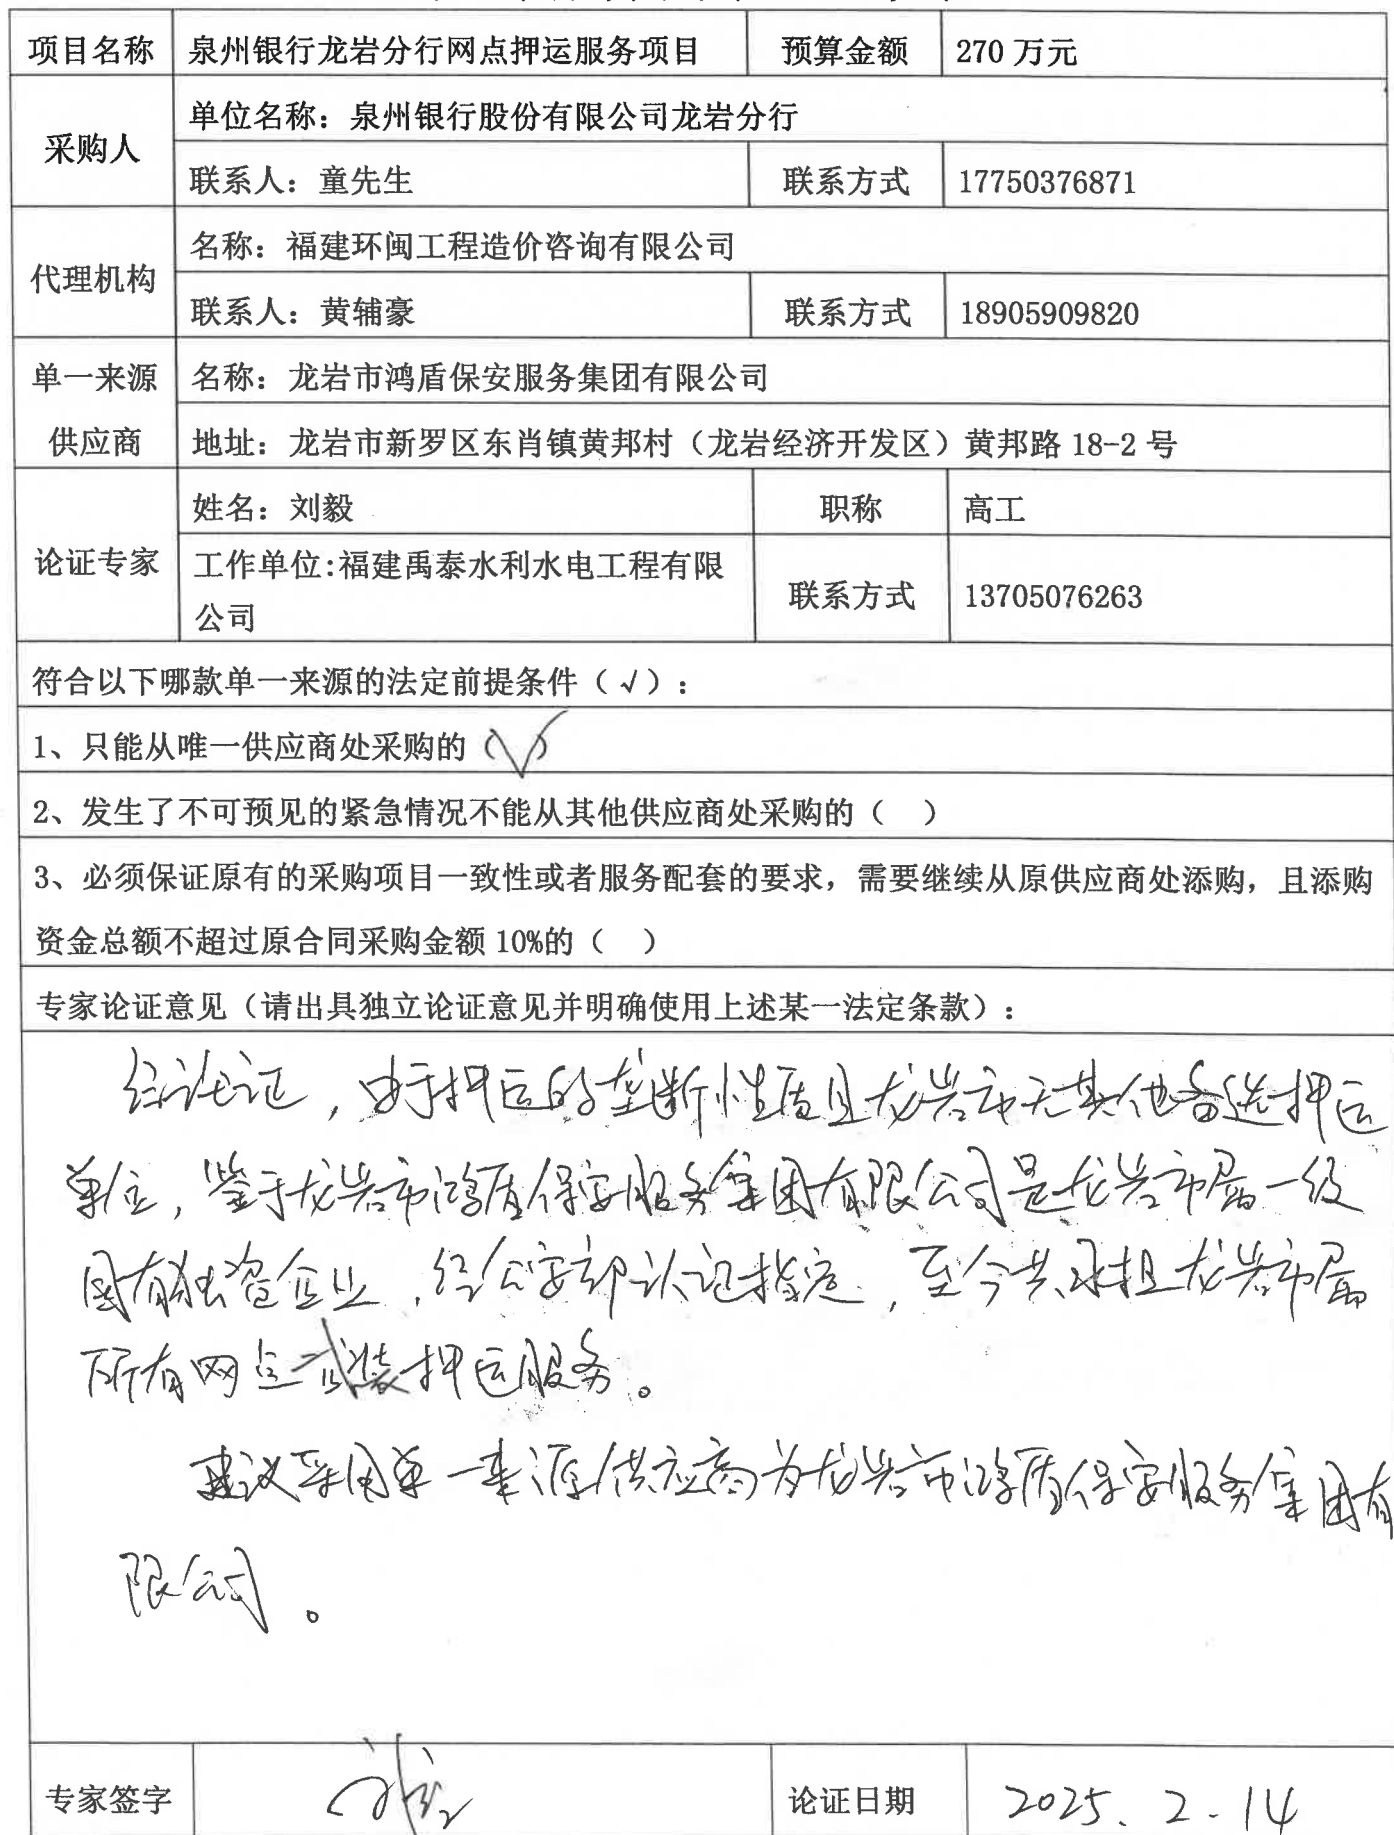 项目名称 泉州银行龙岩分行网点押运服务项目 预算金额 270 万元
采购人 单位名称：泉州银行股份有限公司龙岩分行
联系人：童先生 联系方式 17750376871
代理机构 名称：福建环闽工程造价咨询有限公司
联系人：黄辅豪 联系方式 18905909820
单一来源供应商 名称：龙岩市鸿盾保安服务集团有限公司
地址：龙岩市新罗区东肖镇黄邦村（龙岩经济开发区）黄邦路 18-2 号
论证专家 姓名：刘毅 职称 高工
工作单位:福建禹泰水利水电工程有限
公司 联系方式 13705076263
符合以下哪款单一来源的法定前提条件（√）：
1、只能从唯一供应商处采购的（√）
2、发生了不可预见的紧急情况不能从其他供应商处采购的（ ）
3、必须保证原有的采购项目一致性或者服务配套的要求，需要继续从原供应商处添购，且添购
资金总额不超过原合同采购金额 10%的（ ）
专家论证意见（请出具独立论证意见并明确使用上述某一法定条款）：
经论证，由于押运的垄断性质且龙岩市无其他备选押运
单位，鉴于龙岩市鸿盾保安服务集团有限公司是龙岩市属一级
国有独资企业，经公安部认证指定，至今共承担龙岩市属
所有网点武装押运服务。
建议采用单一来源供应商为龙岩市鸿盾保安服务集团有
限公司。
专家签字 论证日期 2025.2.14